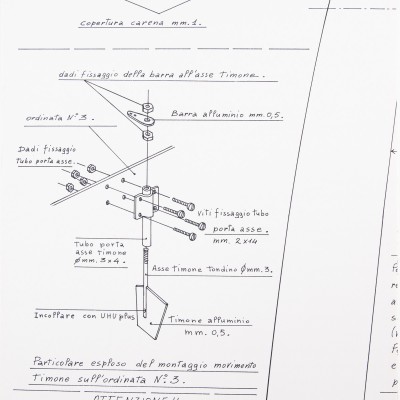 copertura carena mm.1.
dadi fissaggio della barra all'asse Timone.
ordinata N°3.
Barra alluminio mm.0,5.
Dadi fissaggio
tubo porta asse.
Viti fissaggio tubo
porta asse.
mm. 2x14
Tubo porta
asse timone
Ømm. 3x4.
Asse timone tondino Ømm.3.
Incollare con UHU plus
Timone alluminio
mm. 0,5.
Particolare esploso del montaggio movimento
Timone sull'ordinata N°.3.